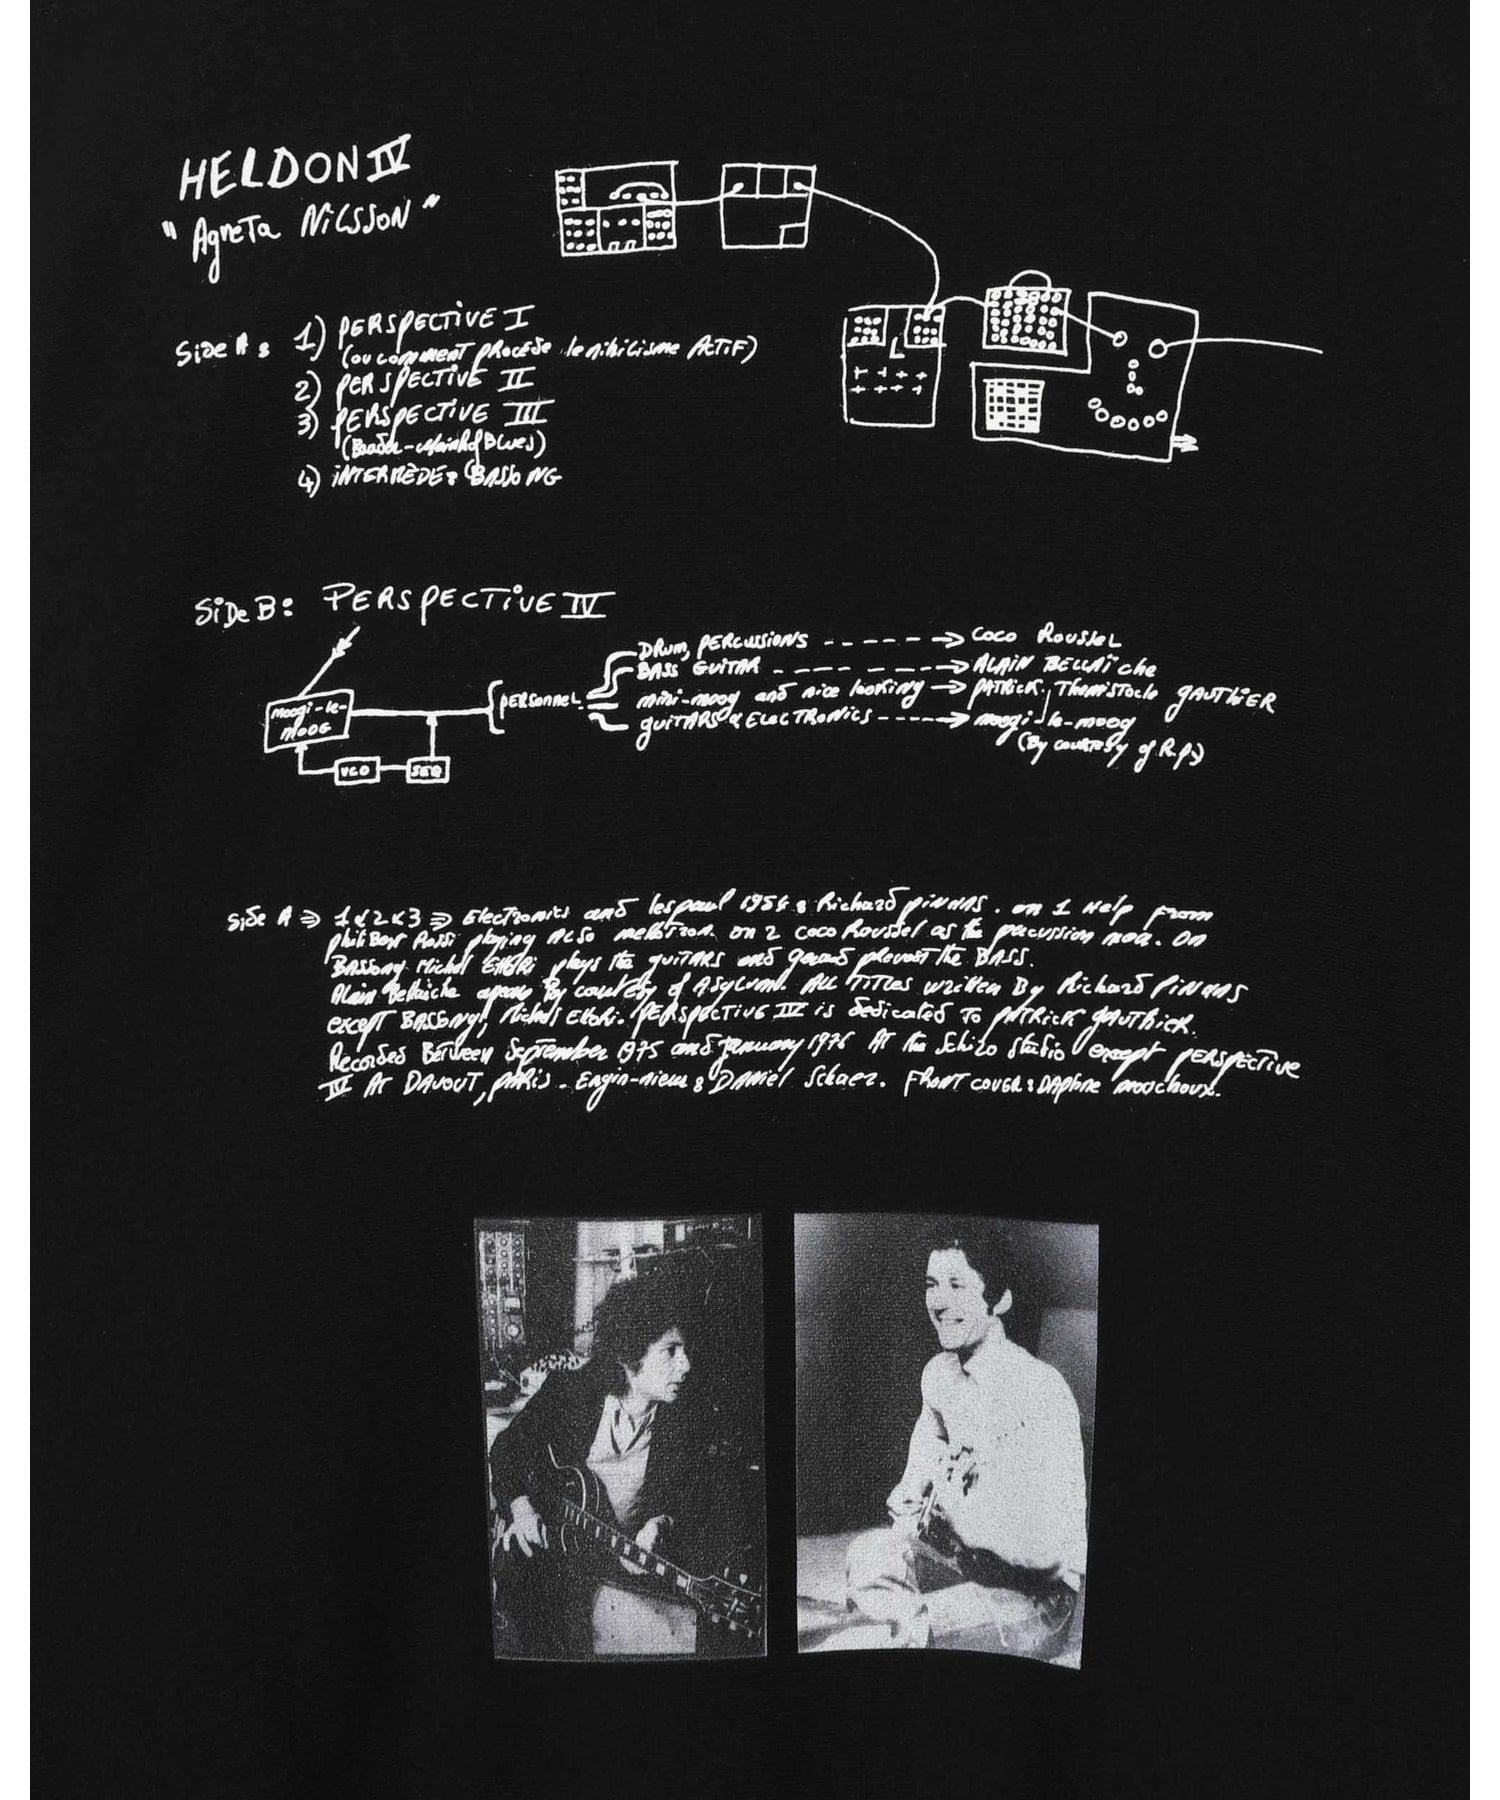 HELDON IV
"Agneta Nilsson"
Side A: 1) PERSPECTIVE I
(ou comment procède le nihilisme ACTIF)
2) PERSPECTIVE II
3) PERSPECTIVE III
(Baader-Meinhof Blues)
4) INTERMÈDE: BASSONG
Side B: PERSPECTIVE IV
DRUM, PERCUSSIONS - - - - - -> COCO ROUSSEL
BASS GUITAR - - - - - -> ALAIN BELLAÏCHE
PERSONNEL
mini-moog and nice looking -> PATRICK Themistocle GAUTHIER
moogi-le-
moog
GUITARS & ELECTRONICS - - - -> moogi-le-moog
(By courtesy of R.P.)
VCO SEQ
Side A => 1&2&3 => Electronics and lespaul 1954: Richard PINHAS. on 1 Help from
philibert Rossi playing ALSO mellotron. on 2 Coco Roussel as the percussion man. On
BASSong Michel EttORi plays the guitARS and gerard prevost the BASS.
Alain Bellaïche appears By courtesy of Asylum. All TITLES written By Richard PINHAS
except BASSong, Michel EttORi. PERSPECTIVE IV is dedicated To PATRICK GAUTHIER.
Recorded Between September 1975 and january 1976 At the Schizo studio except PERSPECTIVE
IV At DAVOUT, PARIS. Engin-nieur: DANiel Schaer. FRONT COVER: DAphne